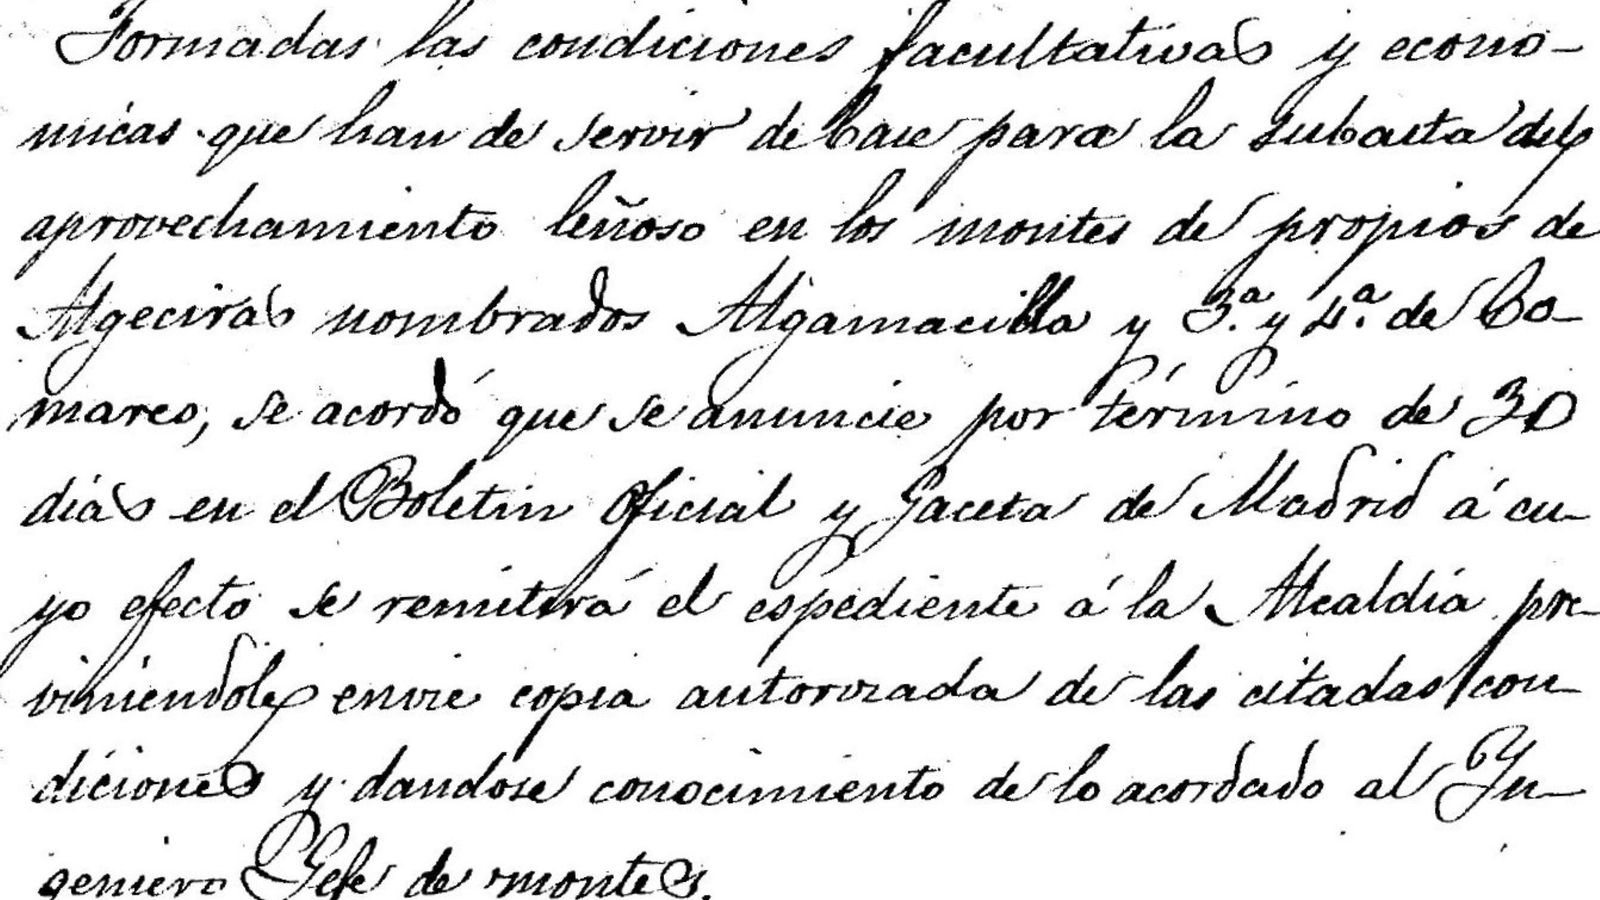 Formadas las condiciones facultativas y econo-
micas que han de servir de base para la subasta del
aprovechamiento leñoso en los montes de propios de
Algeciras nombrados Algamacilla y 3.ª y 4.ª de Co-
mares, se acordó que se anuncie por término de 30
días en el Boletin Oficial y Gaceta de Madrid á cu-
yo efecto se remitirá el espediente á la Alcaldía pre-
viniendole envie copia autorizada de las citadas con-
diciones y dandose conocimiento de lo acordado al Yn-
geniero Gefe de montes.